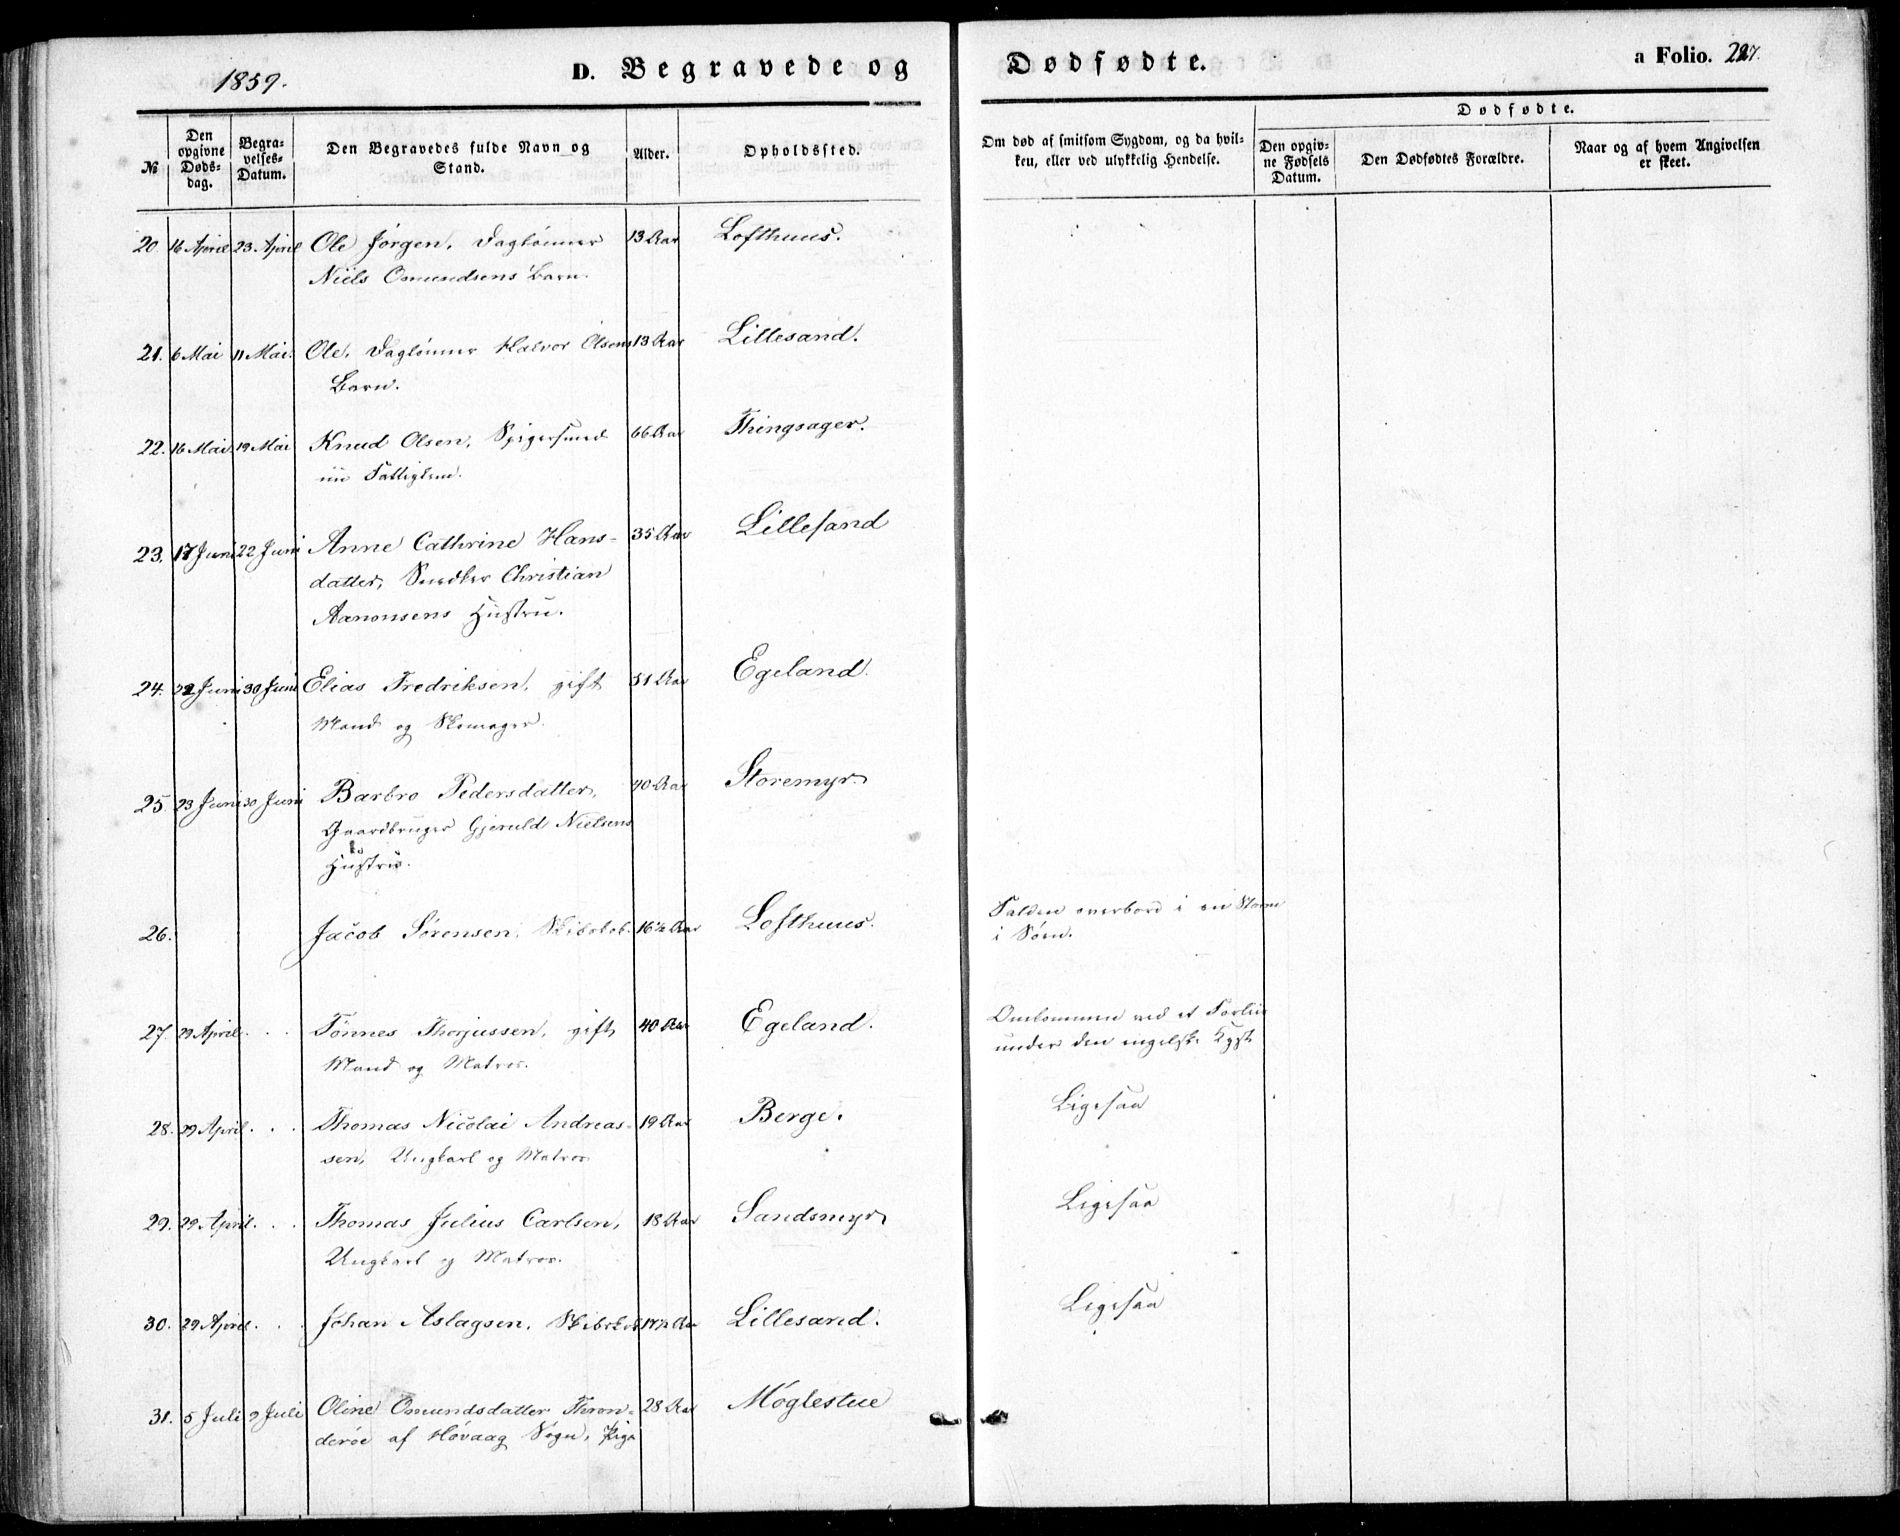 1859.
D. Begravede og Dødfødte.
a Folio. 227.
№
Den opgivne Døds-dag.
Begra-velses-Datum.
Den Begravedes fulde Navn og Stand.
Alder.
Opholdssted.
Om død af smitsom Sygdom, og da hvil-
ken, eller ved ulykkelig Hendelse.
Dødfødte.
Den opgiv-ne Fødsels Datum.
Den Dødfødtes Forældre.
Naar og af hvem Angivelsen er skeet.
20. 16 April 23. April Ole Jørgen, Daglønner 13 Aar Lofthuus.
Niels Omundsens Barn.
21. 6 Mai 11 Mai. Ole, Daglønner Halvor Olsens 13 Aar Lillesand.
Barn.
22. 16 Mai 19 Mai Knud Olsen, Spigersmed 66 Aar Thingsager.
Fattiglem.
23. 17 Juni 22 Juni Anne Cathrine Hans- 35 Aar Lillesand
datter, Snedker Christian
Aanonsens Hustru.
24. 22 Juni 30 Juni Elias Fredriksen, gift 51 Aar Egeland.
Mand og Skomager.
25. 23 Juni 30 Juni Barbro Pedersdatter, 40 Aar Storemyr.
Gaardbruger Gjeruld Nielsens
Hustru.
26. Jacob Sørensen, Skibskok. 16½ Aar Lofthuus. Falden overbord i en Storm
i Søen.
27. 29 April . . Tønnes Thorjussen, gift 40 Aar Egeland. Omkommen ved et Forliis
Mand og Matros. under den engelske Kyst
28. 29 April . . Thomas Nicolai Andreas- 19 Aar Berge. Ligesaa
sen, Ungkarl og Matros
29. 29 April . . Thomas Julius Carlsen, 18 Aar Sandsmyr Ligesaa
Ungkarl og Matros.
30. 29 April . . Johan Aslagsen, Skibskok 17½ Aar Lillesand. Ligesaa
31. 5 Juli 9 Juli Oline Omundsdatter Thron- 28 Aar Møglestue
derøe af Høvaag Sogn, Pige